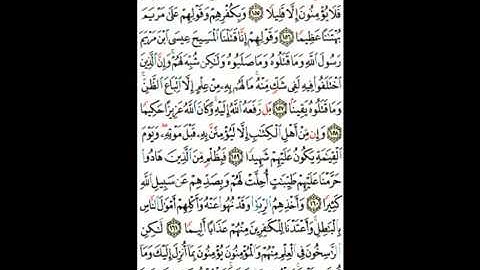 فَلَا يُؤْمِنُونَ إِلَّا قَلِيلًا ١٥٥ وَبِكُفْرِهِمْ وَقَوْلِهِمْ عَلَىٰ مَرْيَمَ
بُهْتَٰنًا عَظِيمًا ١٥٦ وَقَوْلِهِمْ إِنَّا قَتَلْنَا ٱلْمَسِيحَ عِيسَى ٱبْنَ مَرْيَمَ
رَسُولَ ٱللَّهِ وَمَا قَتَلُوهُ وَمَا صَلَبُوهُ وَلَٰكِن شُبِّهَ لَهُمْ وَإِنَّ ٱلَّذِينَ
ٱخْتَلَفُوا۟ فِيهِ لَفِى شَكٍّ مِّنْهُ مَا لَهُم بِهِۦ مِنْ عِلْمٍ إِلَّا ٱتِّبَاعَ ٱلظَّنِّ
وَمَا قَتَلُوهُ يَقِينًۢا ١٥٧ بَل رَّفَعَهُ ٱللَّهُ إِلَيْهِ وَكَانَ ٱللَّهُ عَزِيزًا حَكِيمًا
١٥٨ وَإِن مِّنْ أَهْلِ ٱلْكِتَٰبِ إِلَّا لَيُؤْمِنَنَّ بِهِۦ قَبْلَ مَوْتِهِۦ وَيَوْمَ
ٱلْقِيَٰمَةِ يَكُونُ عَلَيْهِمْ شَهِيدًا ١٥٩ فَبِظُلْمٍ مِّنَ ٱلَّذِينَ هَادُوا۟
حَرَّمْنَا عَلَيْهِمْ طَيِّبَٰتٍ أُحِلَّتْ لَهُمْ وَبِصَدِّهِمْ عَن سَبِيلِ ٱللَّهِ
كَثِيرًا ١٦٠ وَأَخْذِهِمُ ٱلرِّبَوٰا۟ وَقَدْ نُهُوا۟ عَنْهُ وَأَكْلِهِمْ أَمْوَٰلَ ٱلنَّاسِ
بِٱلْبَٰطِلِ وَأَعْتَدْنَا لِلْكَٰفِرِينَ مِنْهُمْ عَذَابًا أَلِيمًا ١٦١ لَّٰكِنِ
ٱلرَّٰسِخُونَ فِى ٱلْعِلْمِ مِنْهُمْ وَٱلْمُؤْمِنُونَ يُؤْمِنُونَ بِمَآ أُنزِلَ إِلَيْكَ وَمَآ